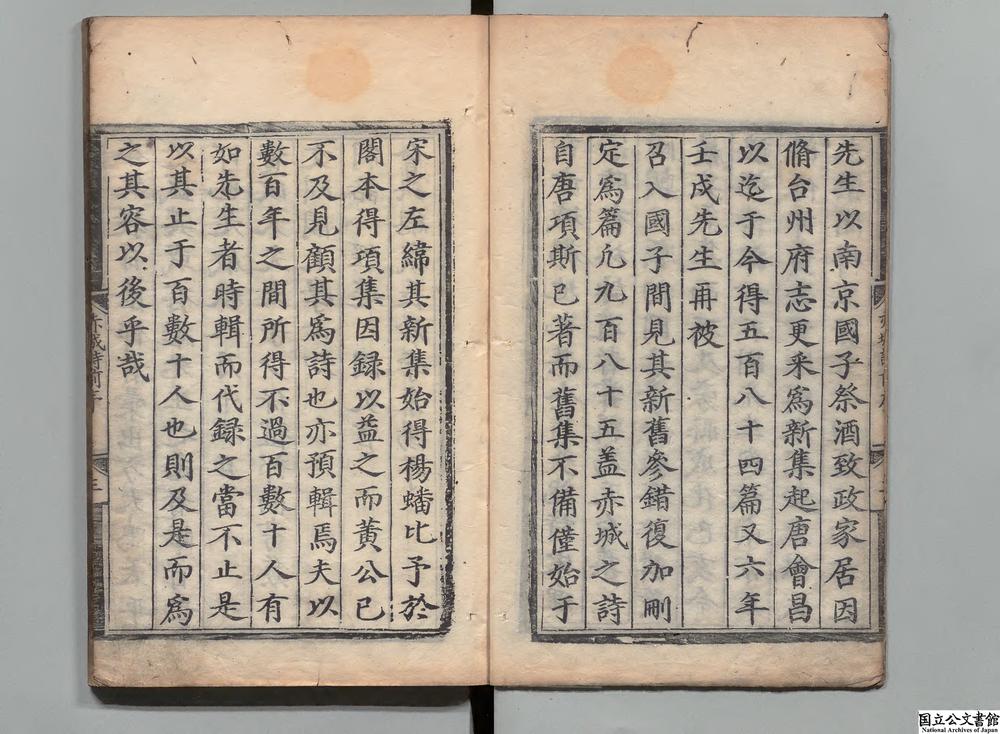 先生以南京國子祭酒致政家居因
脩台州府志更采爲新集起唐會昌
以迄于今得五百八十四篇又六年
壬戌先生再被
召入國子間見其新舊參錯復加刪
定爲篇凢九百八十五盖赤城之詩
自唐項斯已著而舊集不備僅始于
宋之左緯其新集始得楊蟠比予於
閣本得項集因録以益之而黄公已
不及見顧其爲詩也亦預輯焉夫以
數百年之間所得不過百數十人有
如先生者時輯而代録之當不止是
以其止于百數十人也則及是而爲
之其容以後乎哉
赤城詩前序
三
国立公文書館
National Archives of Japan